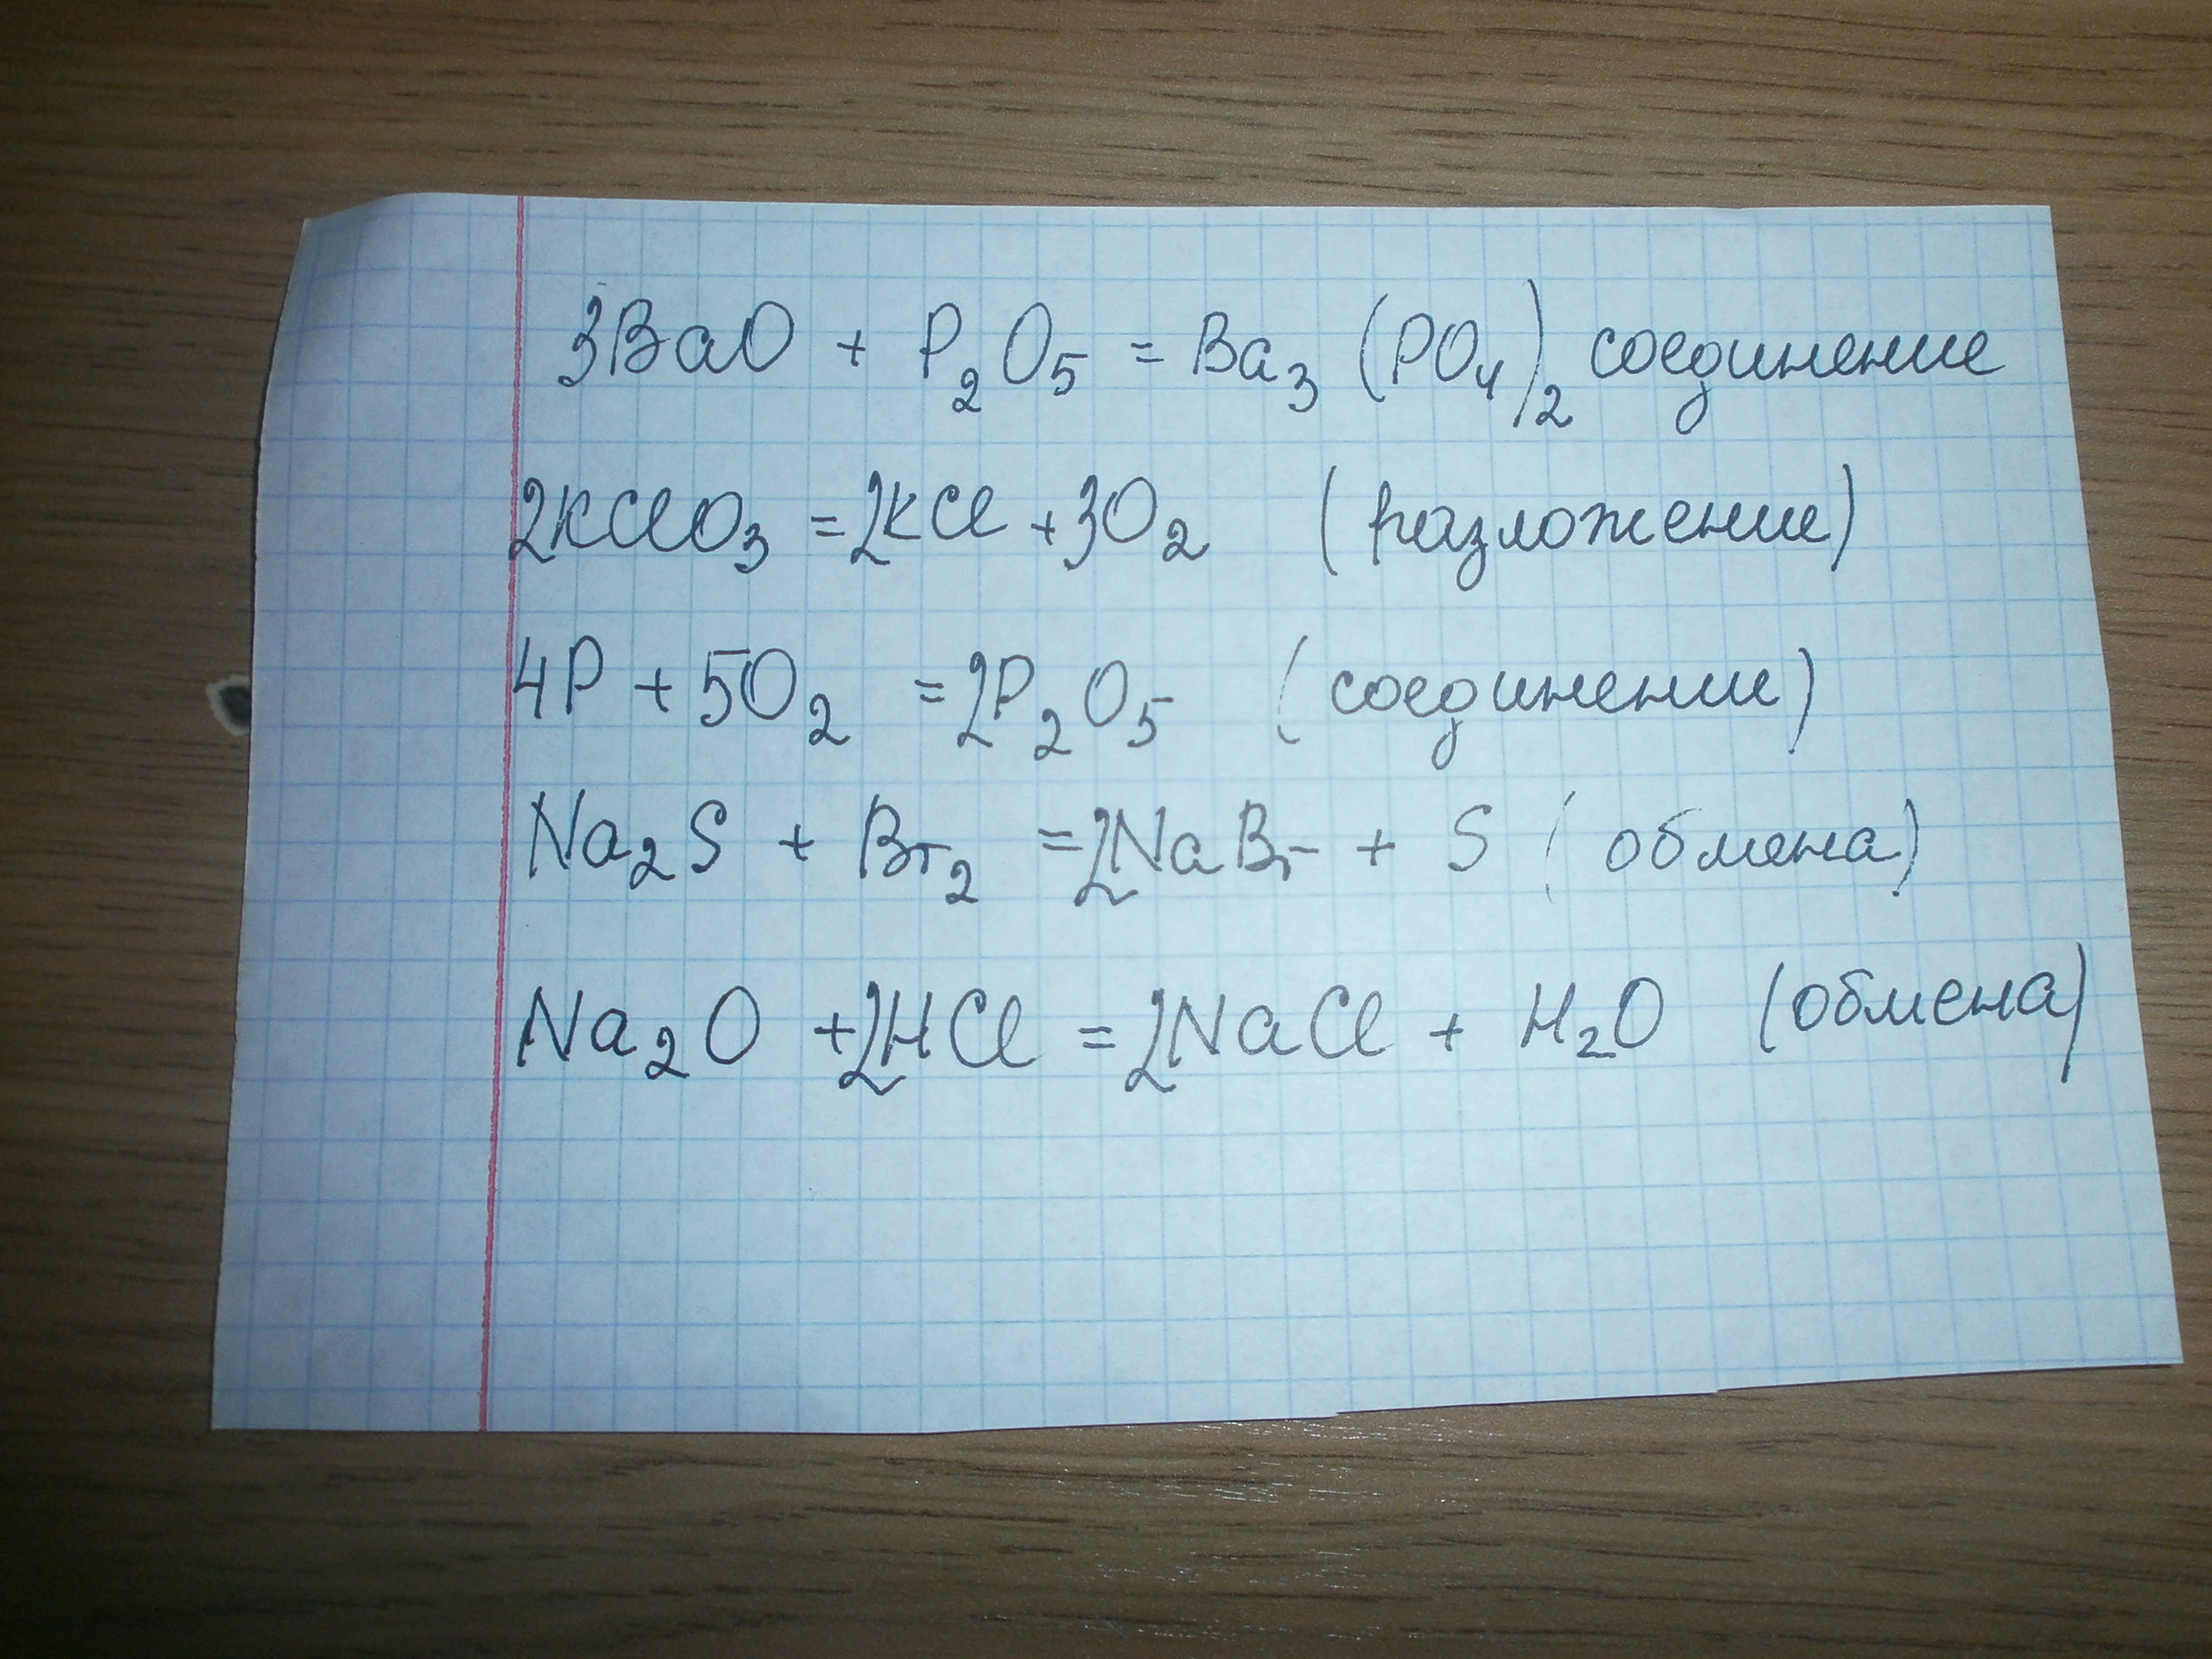 3BaO + P₂O₅ = Ba₃(PO₄)₂ соединение
2KClO₃ = 2KCl + 3O₂ (разложение)
4P + 5O₂ = 2P₂O₅ (соединение)
Na₂S + Br₂ = 2NaBr + S (обмена)
Na₂O + 2HCl = 2NaCl + H₂O (обмена)